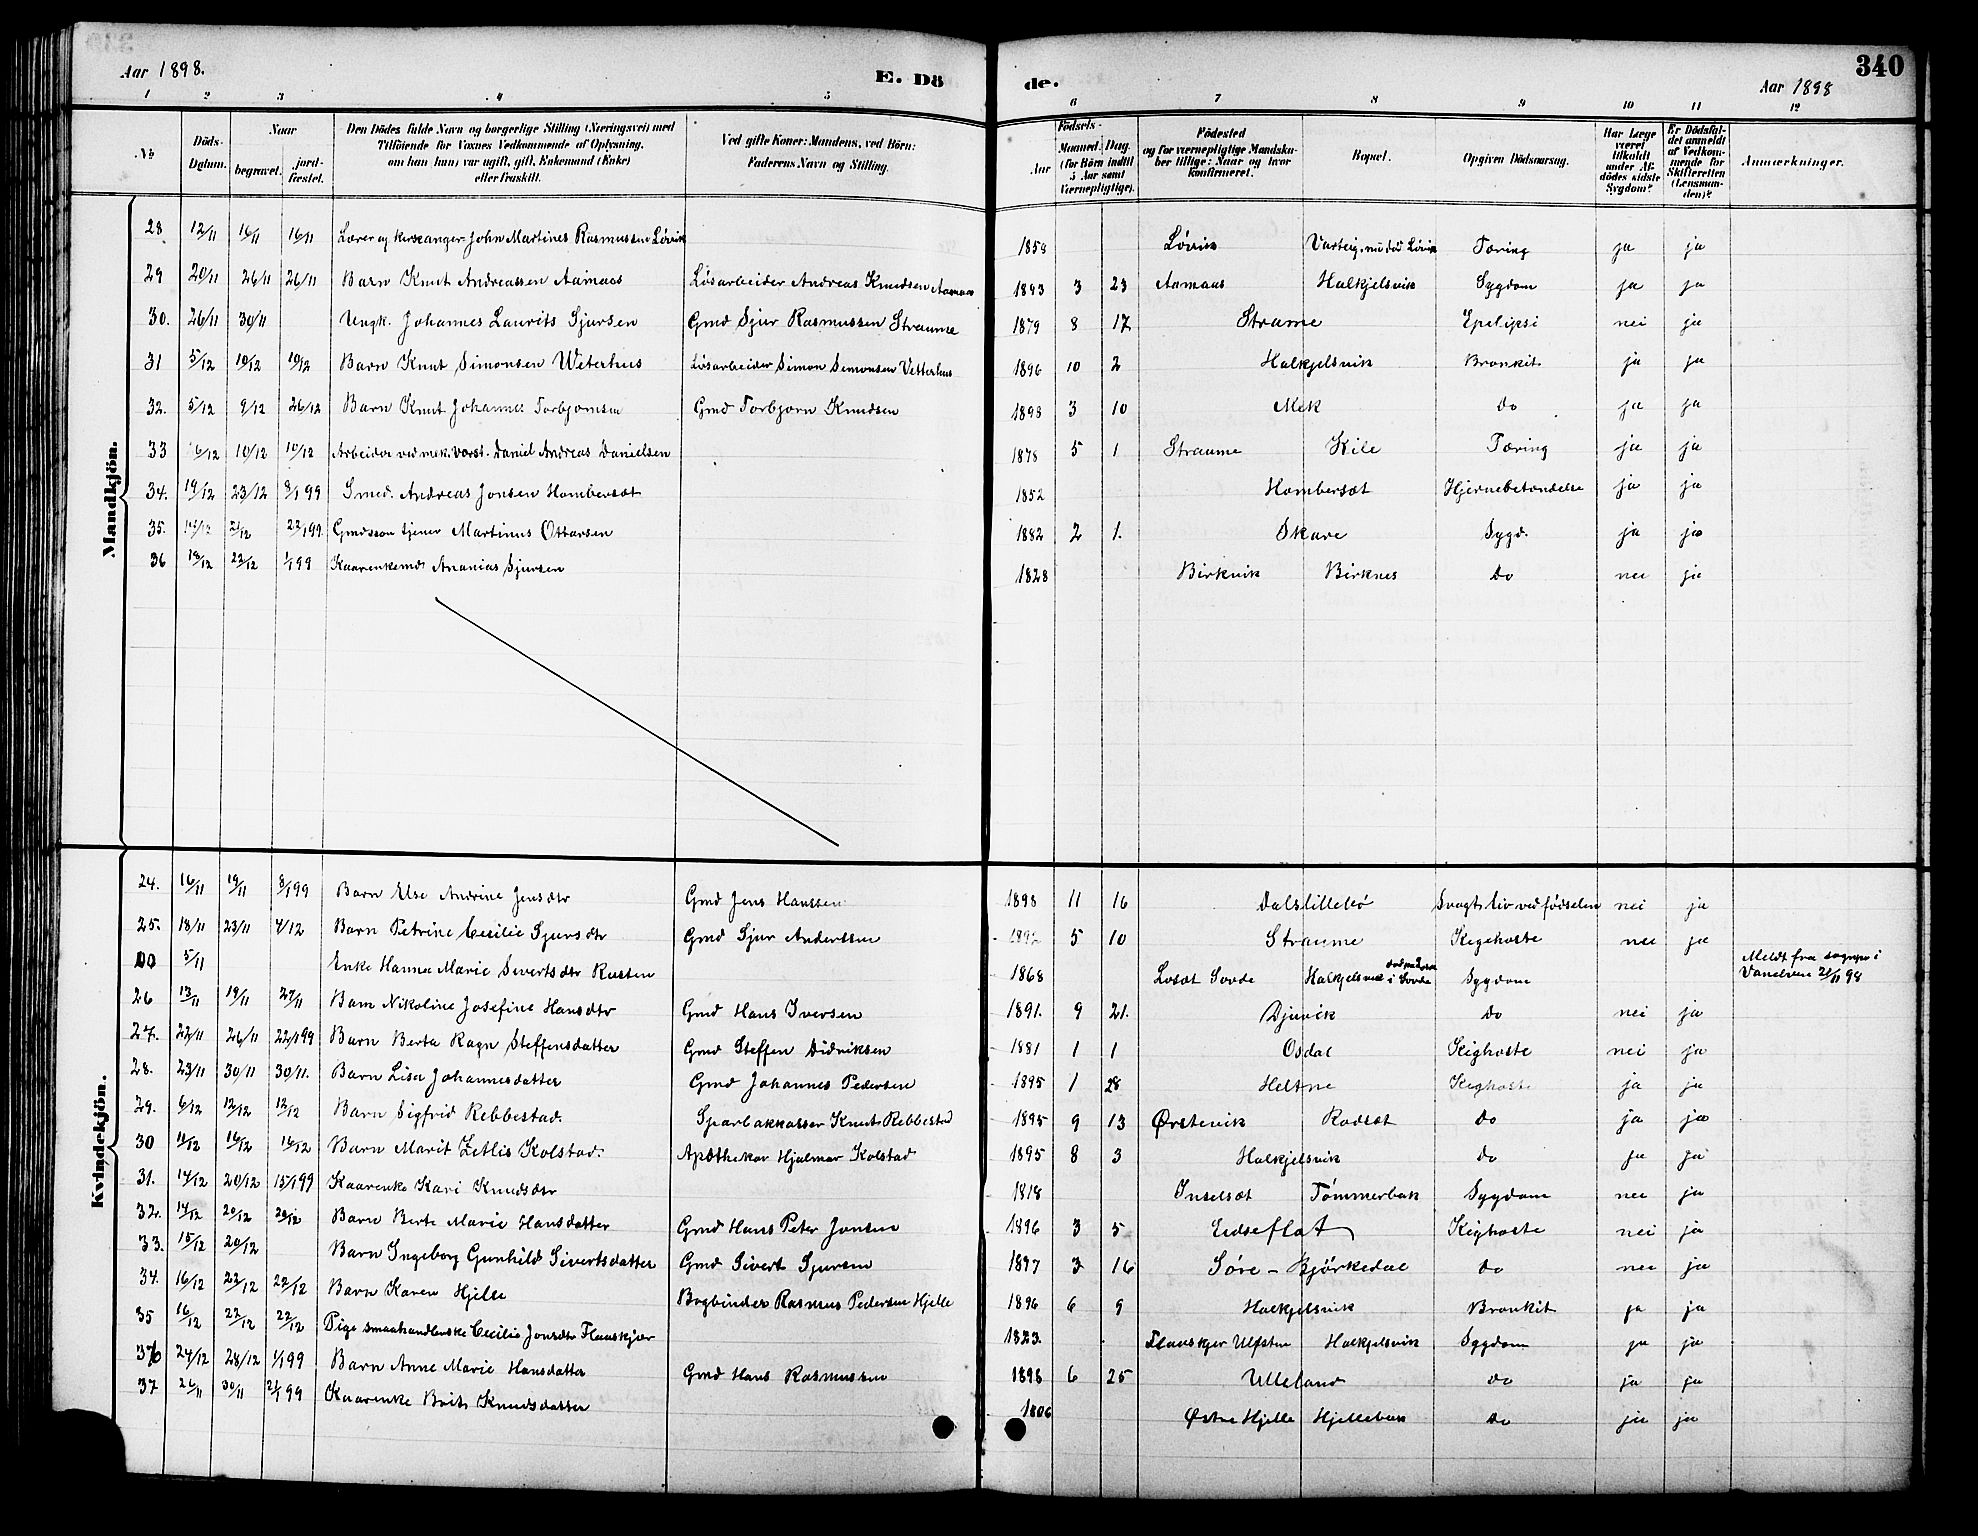 Aar 1898. E. Dö de. 340
Aar 1898
1 2 3 4 5 6 7 8 9 10 11 12
No Döds-Datum. Naar begravet. jordfæstet. Den Dödes fulde Navn og borgerlige Stilling (Næringsvei) med Tilföiende for Voxnes Vedkommende af Oplysning, om han (hun) var ugift, gift, Enkemand (Enke) eller fraskilt. Ved gifte Koner: Mandens, ved Börn: Faderens Navn og Stilling. Födsels- Aar Maaned. Dag. (for Börn indtil 5 Aar samt Værnepligtige). Födested og for værnepligtige Mandskaber tillige: Naar og hvor konfirmeret. Bopæl. Opgiven Dödsaarsag. Har Læge været tilkaldt under Afdödes sidste Sygdom? Er Dödsfaldet anmeldt af Vedkommende for Skifteretten (Lensmanden)? Anmærkninger.
Mandkjön.
28 12/11 16/11 16/11 Lærer og kirkesanger John Martines Rasmussen Løvik 1858 Løvik Tæring ja ja
29 20/11 26/11 26/11 Barn Knut Andreassen Aamaas Løsarbeider Andreas Knudsen Aamaas 1893 3 23 Aamaas Halkjelsvik Sygdom ja ja
30. 26/11 30/11 Ungk. Johannes Laurits Sjursen Gmd Sjur Rasmussen Straume 1879 8 17 Straume Epelipsi nei ja
31 5/12 10/12 10/12 Barn Knut Simonsen Weterhus Løsarbeider Simon Simonsen Vetterhus 1896 10 2 Halkjelsvik Bronkit ja ja
32. 5/12 9/12 26/12 Barn Knut Johannes Torbjørnsen Gmd Torbjørn Knudsen 1898 3 10 Mek Do ja ja
33 6/12 10/12 10/12 Arbeider ved mek. værst. Daniel Andreas Danielsen 1878 5 1 Straume Kile Tæring ja ja
34. 19/12 23/12 8/1 99 Smed. Andreas Jonsen Hambersæt 1852 Hambersæt Hjernebetændelse ja ja
35. 21/12 22/1 99 Gmdssøn tjener Martinus Ottarsen 1882 2 1. Skare Sygd. ja ja
36 18/12 22/12 1/1 99 Kaarenkemd. Ananias Sjursen 1828 Birkvik Birknes Do nei ja
Kvindekjön.
24. 16/11 19/11 8/1 99 Barn Else Andrine Jensdtr Gmd Jens Hanssen 1898 11 16 Dalslillebø Svagt liv ved fødselen nei ja
25. 18/11 23/11 4/12 Barn Petrine Cecilie Sjursdtr Gmd Sjur Anderssen 5 10 Straume Kigehoste nei ja
00 5/11 Enke Hanna Marie Sivertsdtr Rusten 1868 Løset Sovde Halkjelsvik i Sovde Sygdom Meldt fra sognepr i Vanelven 21/11 98
26 13/11 19/11 27/11 Barn Nikoline Josefine Hansdtr Gmd Hans Iversen 1891. 9 21. Djuvik Do nei ja
27. 22/11 26/11 22/1 99 Barn Berta Ragn. Steffensdatter Gmd Steffen Didriksen 1881 1 1 Osdal Kighoste nei ja
28. 23/11 30/11 30/11. Barn Lisa Johannesdatter Gmd Johannes Pedersen 1895 1 28 Heltne Kighoste ja ja
29. 6/12 12/12 12/12 Barn Sigfrid Rebbestad. Sparbakkasser Knut Rebbestad 1895 9 13 Ørstevik Rødsæt Do ja ja
30 11/12 16/12 16/12 Barn Marit Zetlis Kolstad. Apotheker Hjalmar Kolstad 1895 8 3 Halkjelsvik Do ja ja
31. 14/12 20/12 15/1 99 Kaarenke Kari Knudsdtr 1818 Inselsæt Tømmerbak Sygdom nei ja
32. 14/12 20/12 20/12 Barn Berte Marie Hansdatter Gmd Hans Peter Jonsen 1896 3 5 Eidseflat Kighoste nei ja
33. 15/12 20/12 Barn Ingeborg Gunhild Sivertsdatter Gmd Sivert Sjursen 1897 3 16 Søre - Bjørkedal Do nei ja
34. 16/12 22/12 22/12 Barn Karen Hjelle Bogbinder Rasmus Pedersen Hjelle 1896 6 9 Halkjelsvik Bronkit ja ja
35 16/12 22/12 22/12 Pige smaahandlerske Cecilie Jonsdtr Flauskjær 1823 Flauskjer Ulfsten Halkjelsvik Sygdom ja ja
36 24/12 28/12 1/1 99 Barn Anne Marie Hansdatter Gmd Hans Rasmussen 1898 6 25 Ulleland Do ja ja
37 26/11 30/11 2/1 99 Kaarenke Brit Knudsdatter 1806 Østre Hjelle Hjellebak Do ja ja